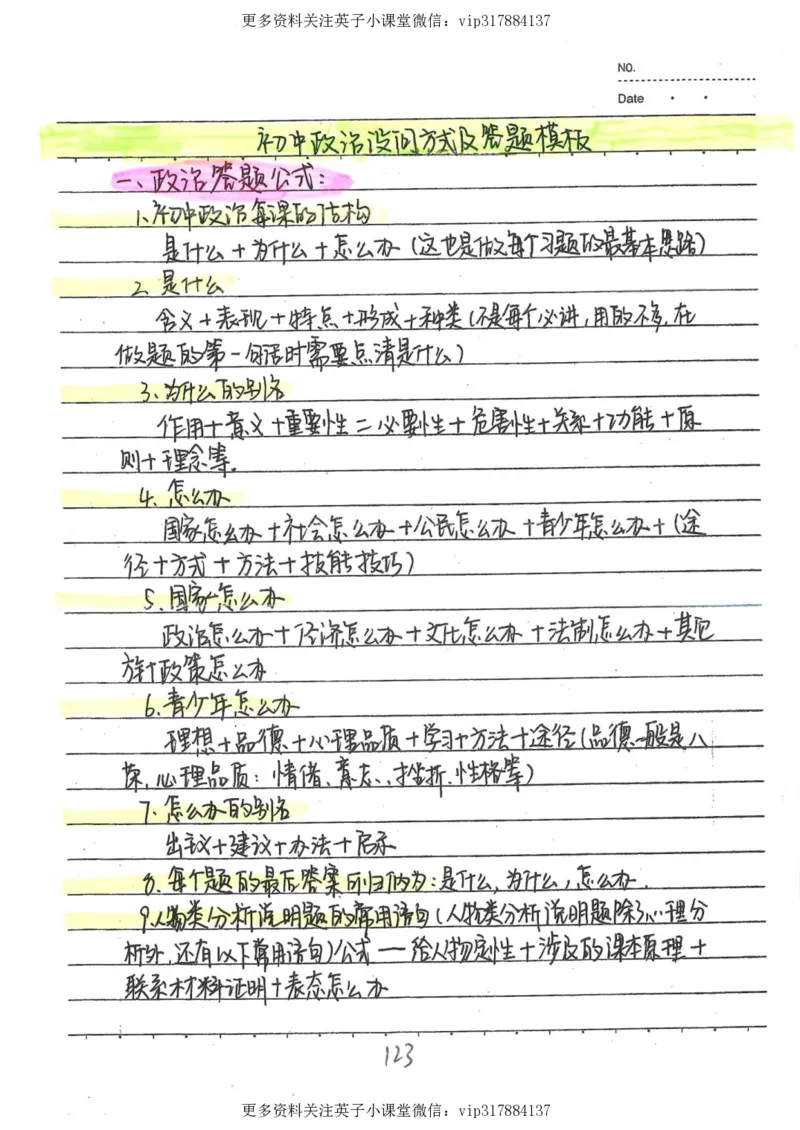 更多资料关注英子小课堂微信：vip317884137
NO.
Date
初中政治设问方式及答题模板
一、政治答题公式：
1、初中政治每课的结构
是什么＋为什么＋怎么办（这也是做每个习题的最基本思路）
2、是什么
含义＋表现＋特点＋形成＋种类（不是每个必讲，用的不多，在
做题的第一句话时需要点清是什么）
3、为什么的别名
作用＋意义＋重要性＝必要性＋危害性＋关系＋功能＋原
则＋理念等。
4、怎么办
国家怎么办＋社会怎么办＋公民怎么办＋青少年怎么办＋（途
径＋方式＋方法＋技能技巧）
5、国家怎么办
政治怎么办＋经济怎么办＋文化怎么办＋法制怎么办＋其它
方针政策怎么办
6、青少年怎么办
理想＋品德＋心理品质＋学习＋方法＋途径（品德一般是八
荣，心理品质：情绪、意志、挫折、性格等）
7、怎么办的别名
出议＋建议＋办法＋启示
8、每个题的最后答案可归纳为：是什么，为什么，怎么办．
9、人物类分析说明题的常用语句（人物类分析说明题除了心理分
析外，还有以下常用语句）公式—给人物定性＋涉及的课本原理＋
联系材料证明＋表态怎么办
123
更多资料关注英子小课堂微信：vip317884137